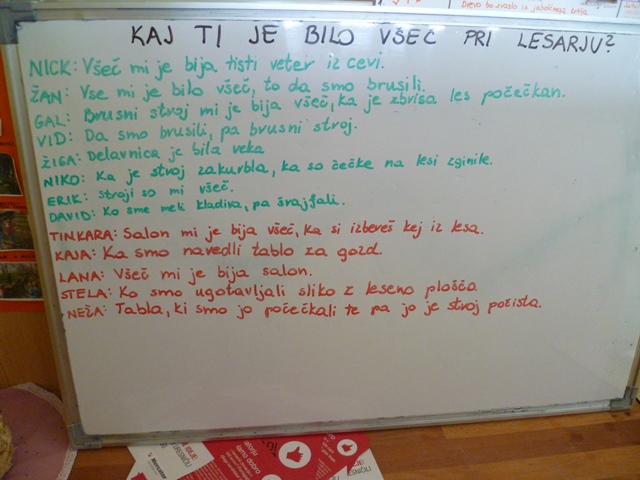 Drevo bo zraslo iz jabolčnega
KAJ TI JE BILO VŠEČ PRI LESARJU?
NICK: Všeč mi je bija tisti veter iz cevi.
ŽAN: Vse mi je bilo všeč, to da smo brusili.
GAL: Brusni stroj mi je bija všeč, ka je zbrisa les počečkan.
VID: Da smo brusili, pa brusni stroj.
ŽIGA: Delavnica je bila velka
NIKO: Ka je stroj zakurbla, ka so čečke na lesi zginile.
ERIK: Stroji so mi všeč.
DAVID: Ko sme meli kladiva, pa šrajfali.
TINKARA: Salon mi je bija všeč, ka si izbereš kej iz lesa.
KAJA: Ka smo navedli tablo za gozd.
LANA: Všeč mi je bija salon.
STELA: Ko smo ugotavljali sliko z leseno plošča
NEŽA: Tabla, ki smo jo počečkali te pa jo je stroj počista.
Mercator